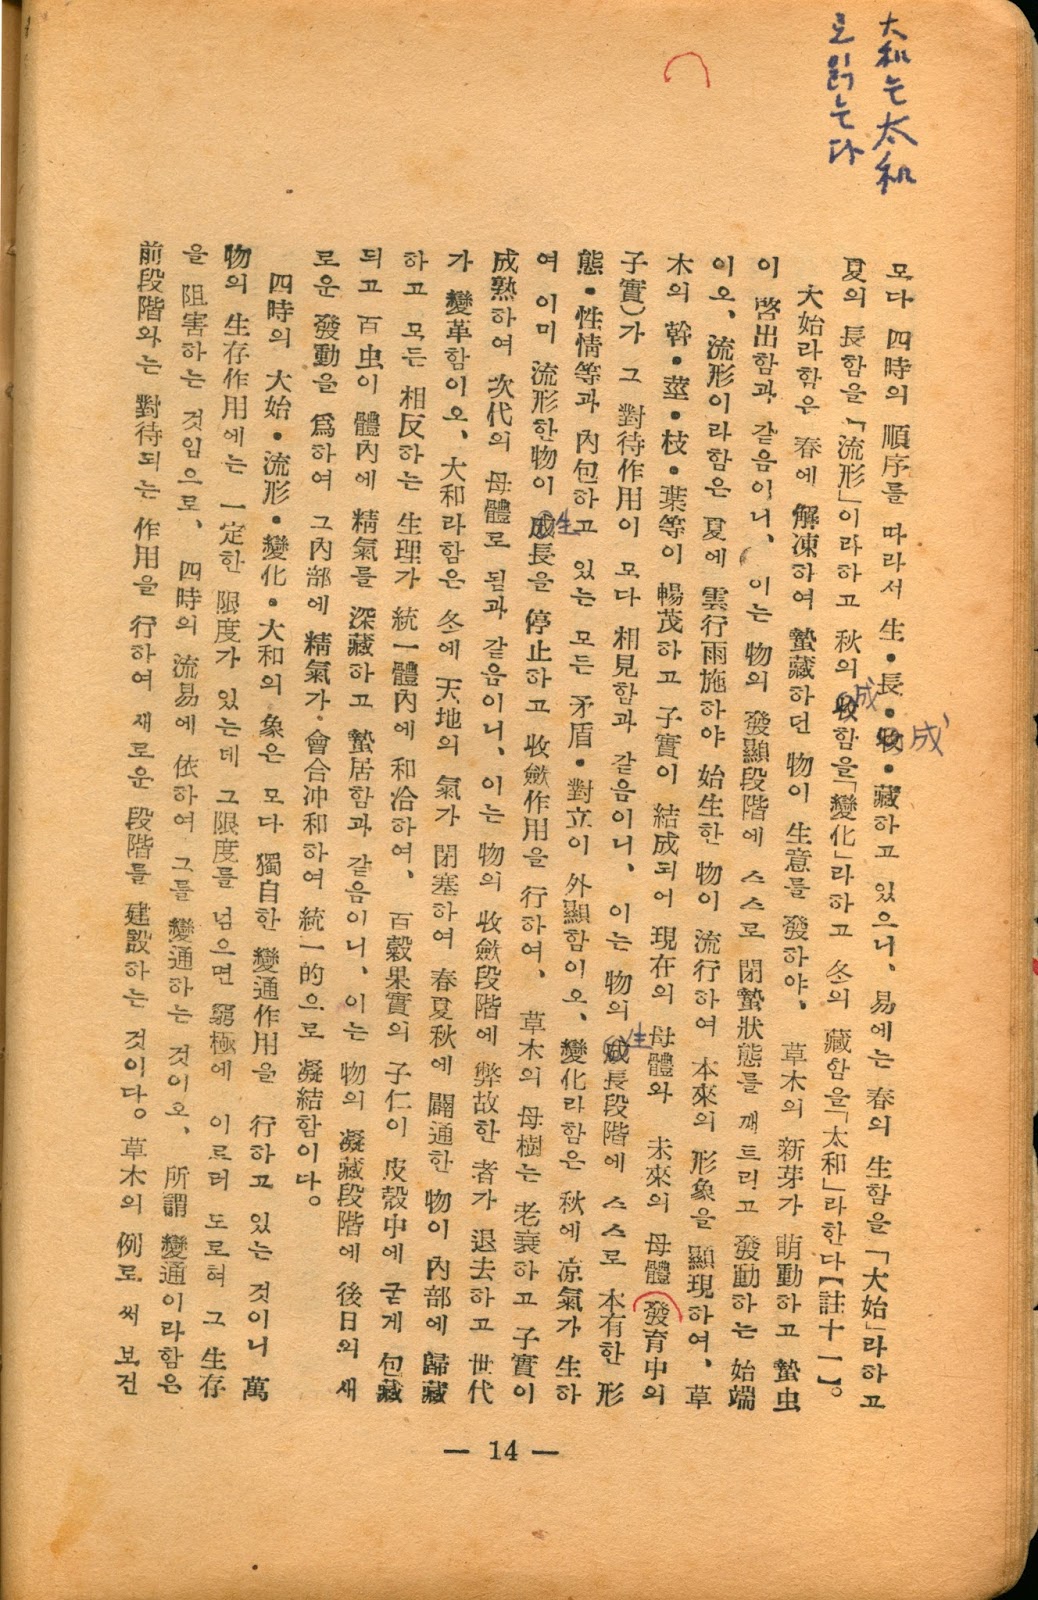 大和는 太和
로 읽는다
모다 四時의 順序를 따라서 生·長·收·藏하고 있으니、易에는 春의 生함을「大始」라하고
成
夏의 長함을「流形」이라하고 秋의 收함을「變化」라하고 冬의 藏함을「太和」라한다【註十一】。
成
大始라함은 春에 解凍하여 蟄藏하던 物이 生意를 發하야、草木의 新芽가 萌動하고 蟄虫
이 啓出함과 같음이니、이는 物의 發顯段階에 스스로 閉蟄狀態를 깨트리고 發動하는 始端
이오、流形이라함은 夏에 雲行雨施하야 始生한 物이 流行하여 本來의 形象을 顯現하여、草
木의 幹·莖·枝·葉等이 暢茂하고 子實이 結成되어 現在의 母體와 未來의 母體 發育中의
子實)가 그 對待作用이 모다 相見함과 같음이니、이는 物의 成長段階에 스스로 本有한 形
生
態·性情等과 內包하고 있는 모든 矛盾·對立이 外顯함이오、變化라함은 秋에 凉氣가 生하
여 이미 流形한物이 成長을 停止하고 收斂作用을 行하여、草木의 母樹는 老衰하고 子實이
生
成熟하여 次代의 母體로 됨과 같음이니、이는 物의 收斂段階에 弊故한 者가 退去하고 世代
가 變革함이오、大和라함은 冬에 天地의 氣가 閉塞하여 春夏秋에 闢通한 物이 內部에 歸藏
하고 모든 相反하는 生理가 統一體內에 和洽하여、百穀果實의 子仁이 皮殼中에 굳게 包藏
되고 百虫이 體內에 精氣를 深藏하고 蟄居함과 같음이니、이는 物의 凝藏段階에 後日의 새
로운 發動을 爲하여 그內部에 精氣가 會合冲和하여 統一的으로 凝結함이다。
四時의 大始·流形·變化·大和의 象은 모다 獨自한 變通作用을 行하고 있는 것이니 萬
物의 生存作用에는 一定한 限度가 있는데 그限度를 넘으면 窮極에 이르러 도로혀 그 生存
을 阻害하는 것임으로、四時의 流易에 依하여 그를 變通하는 것이오、所謂 變通이라함은
前段階와는 對待되는 作用을 行하여 새로운 段階를 建設하는 것이다。草木의 例로써 보건
— 14 —